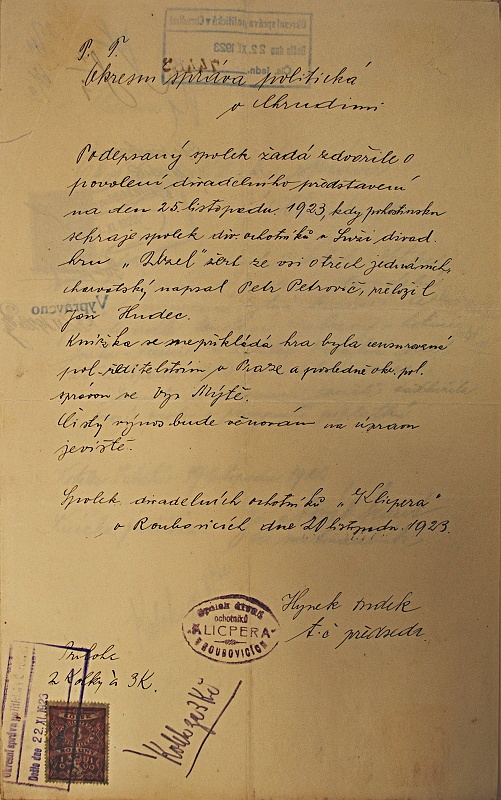 P. T.
Okresní správa politická
v Chrudimi
Podepsaný spolek žádá zdvořile o
povolení divadelního představení
na den 25. listopadu 1923, kdy pohostinsku
sehraje spolek div. ochotníků z Luže divad.
hru „Uzel" žert ze vsi o třech jednáních,
charvatsky napsal Petr Petrovič, přeložil
Jan Hudec.
Knížka se nepřikládá hra byla censurována
pol. ředitelstvím v Praze a posledně okr. pol.
správou ve Vys. Mýtě.
Čistý výnos bude věnován na úpravu
jeviště.
Spolek divadelních ochotníků „Klicpera"
v Rouboviciích dne 20 listopadu 1923.
Hynek
t. č. předseda.
Spolek divad.
ochotníků
KLICPERA
v ROUBOVICÍCH
2 kolky à 3K.
Okresní správa politická
Došlo dne 22. XI. 1923
Okresní správa politická v Chrudimi
Došlo dne 22. XI. 1923
Vypraveno